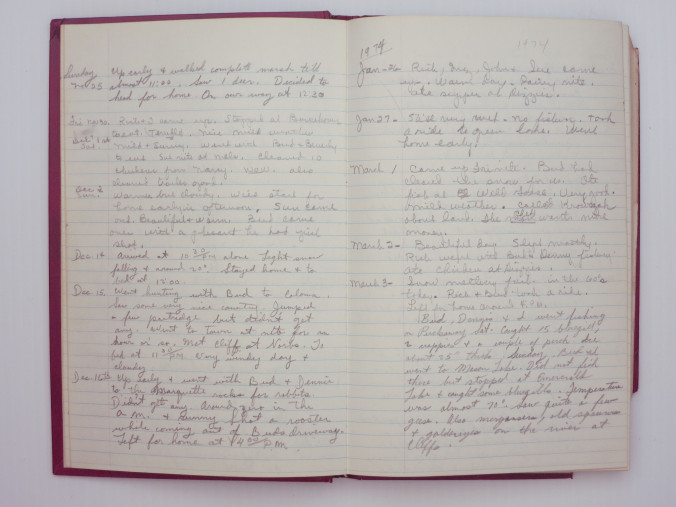 Sunday Up early & walked complete marsh till
Nov 25 almost 11:00. Saw 1 deer. Decided to
head for home. On our way at 12:30
Fri Nov 30. came up. Stopped at
mild weather
Dec. 1st Mild & Sunny. went with Bud & Beverly
to eat
chickens from Nancy. also
cleaned
Dec. 2 Warmer but cloudy. Will start for
home early afternoon. Sun came
out. Beautiful & warm. Bud came
over with a pheasant he had just
shot.
Dec. 14 Arrived at 10 30 PM alone. Light snow
falling & around 20°. Stayed home & to
bed at 12:00.
Dec. 15. Went hunting with Bud to Coloma.
Saw some very nice country. Jumped
a few partridge but didn't get
any. Went to town at nite for an
hour or so. Met Cliff at Norbs. To
bed at 11 30 PM. Very windy day &
cloudy
Dec. 16th Up early & went with Bud & Dennis
to the Marquette rocks for rabbits.
Didn't get any. Around zero in the
A.M. & sunny. Shot a rooster
while coming out of Buds driveway.
Left for home at 4 00 P.M.
1974
1974
Jan-26 Rich, & Sue came
up. Warm day. Fairly nite.
Ate supper at
Jan 27- Still very mild. No fishing. Took
a ride to Green Lake. Went
home early.
March 1 Came up Fri nite. Bud had
cleared the snow for us.
Very nice.
mild weather. Called
about land. She wants more
money.
March 2- Beautiful day. Slept
Rich went with Bud & Denny fishing
Ate chicken at
March 3- Snow melting fast. in the 60's
today. Rich & Bud took a ride.
Left for home around
(Bud, Dennis & I went fishing
on Puckaway Sat. Caught 15 bluegill,
2 crappie & a couple of perch. Ice
about 25" thick. Sunday, Bud & I
went to Mason Lake. Did not fish
there but stopped at Emerald
Lake & caught some bluegills. Temperature
was almost 70°. Saw quite a few
geese. Also mergansers, old squaws
& goldeneyes on the river at
Cliffs.